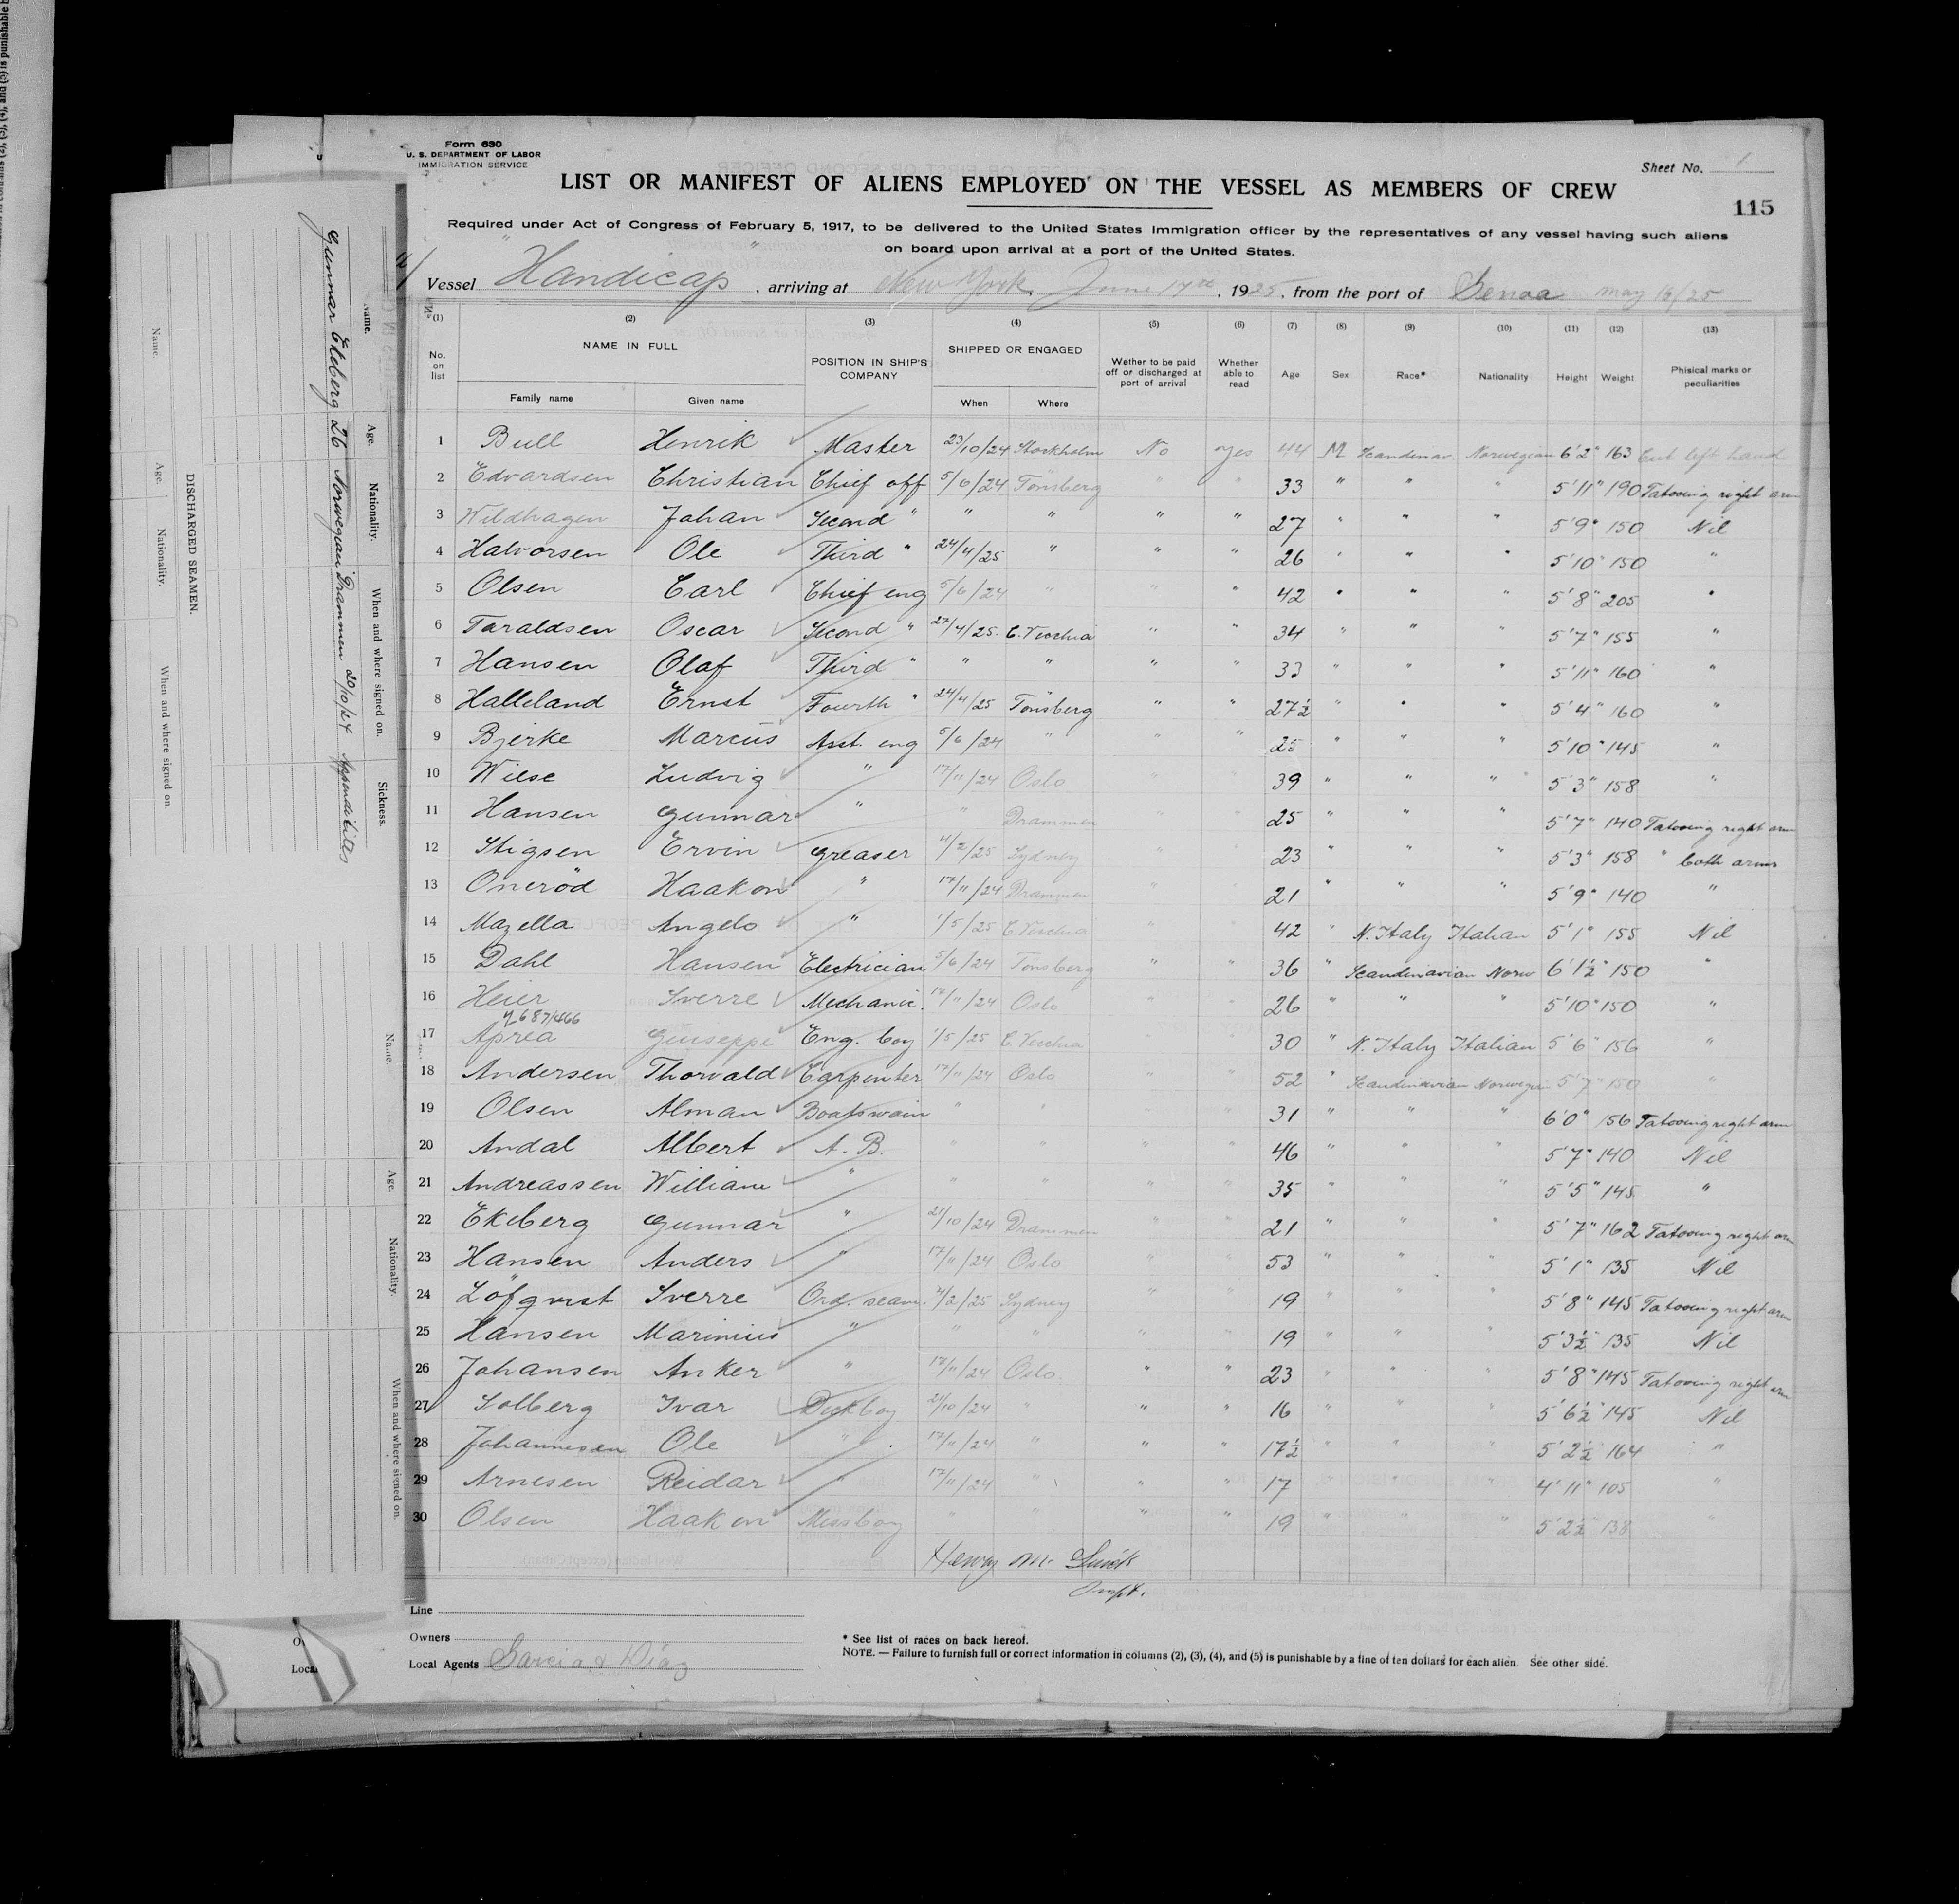 Form 630
U. S. DEPARTMENT OF LABOR
IMMIGRATION SERVICE
Sheet No. 1
LIST OR MANIFEST OF ALIENS EMPLOYED ON THE VESSEL AS MEMBERS OF CREW
115
Required under Act of Congress of February 5, 1917, to be delivered to the United States Immigration officer by the representatives of any vessel having such aliens
on board upon arrival at a port of the United States.
Vessel "Handicap", arriving at New York, June 17th, 1925, from the port of Genoa may 16/25
(1) (2) (3) (4) (5) (6) (7) (8) (9) (10) (11) (12) (13)
No. on list NAME IN FULL Family name Given name POSITION IN SHIP'S COMPANY SHIPPED OR ENGAGED When Where Wether to be paid off or discharged at port of arrival Whether able to read Age Sex Race* Nationality Height Weight Phisical marks or peculiarities
1 Bull Henrik Master 23/10/24 Stockholm No Yes 44 M Scandinav. Norwegian 6'2" 163 Cut left hand
2 Edvardsen Christian Chief off 5/6/24 Tönsberg " " 33 " " " 5'11" 190 Tatooing right arm
3 Wildhagen Johan Second " " " " " 27 " " " 5'9" 150 Nil
4 Halvorsen Ole Third " 24/4/25 " " " 26 " " " 5'10" 150 "
5 Olsen Carl Chief eng 5/6/24 " " " 42 " " " 5'8" 205 "
6 Taraldsen Oscar Second " 27/4/25 C. Vecchia " " 34 " " " 5'7" 155 "
7 Hansen Olaf Third " " " " " 33 " " " 5'11" 160 "
8 Halleland Ernst Fourth " 24/4/25 Tönsberg " " 27½ " " " 5'4" 160 "
9 Bjerke Marcus Asst. eng 5/6/24 " " " 25 " " " 5'10" 145 "
10 Wilse Ludvig " 17/11/24 Oslo " " 39 " " " 5'3" 158 "
11 Hansen Gunnar " " Drammen " " 25 " " " 5'7" 140 Tatooing right arm
12 Stigsen Ervin Greaser 4/2/25 Sydney " " 23 " " " 5'3" 158 " both arms
13 Oneröd Haakon " 17/11/24 Drammen " " 21 " " " 5'9" 140 "
14 Mazella Angelo " 1/5/25 C. Vecchia " " 42 " N. Italy Italian 5'1" 155 Nil
15 Dahl Hansen Electrician 5/6/24 Tönsberg " " 36 " Scandinavian Norw 6'1½" 150 "
16 Heier Sverre Mechanic. 17/11/24 Oslo " " 26 " " " 5'10" 150 "
17 Aprea Giuseppe Eng. boy 1/5/25 C. Vecchia " " 30 " N. Italy Italian 5'6" 156 "
18 Andersen Thorvald Carpenter 17/11/24 Oslo " " 52 " Scandinavian Norwegian 5'7" 150 "
19 Olsen Alman Boatswain " " " " 31 " " " 6'0" 156 Tatooing right arm
20 Andal Albert A. B. " " " " 46 " " " 5'7" 140 Nil
21 Andreassen William " " " " " 35 " " " 5'5" 145 "
22 Ekeberg Gunnar " 21/10/24 Drammen " " 21 " " " 5'7" 162 Tatooing right arm
23 Hansen Anders " 17/11/24 Oslo " " 53 " " " 5'1" 135 Nil
24 Löfqvist Sverre Ord. seam. 4/2/25 Sydney " " 19 " " " 5'8" 145 Tatooing right arm
25 Hansen Marinius " " " " " 19 " " " 5'3½" 135 Nil
26 Johansen Anker " 17/11/24 Oslo " " 23 " " " 5'8" 145 Tatooing right arm
27 Solberg Ivar Deckboy 21/10/24 " " " 16 " " " 5'6½" 145 Nil
28 Johannesen Ole " 17/11/24 " " " 17½ " " " 5'2½" 164 "
29 Arnesen Reidar " 17/11/24 " " " 17 " " " 4'11" 105 "
30 Olsen Haakon Messboy " " " " 19 " " " 5'2½" 138 "
Henry M.
Line
Owners
Local Agents Garcia & Diaz
* See list of races on back hereof.
NOTE. — Failure to furnish full or correct information in columns (2), (3), (4), and (5) is punishable by a fine of ten dollars for each alien. See other side.
DISCHARGED SEAMEN.
Name. Age. Nationality. When and where signed on. Sickness.
Gunnar Ekeberg 26 Norwegian Drammen 20/10/24 Appendicitis
Name. Age. Nationality. When and where signed on.
Name. Age. Nationality. When and where signed on.